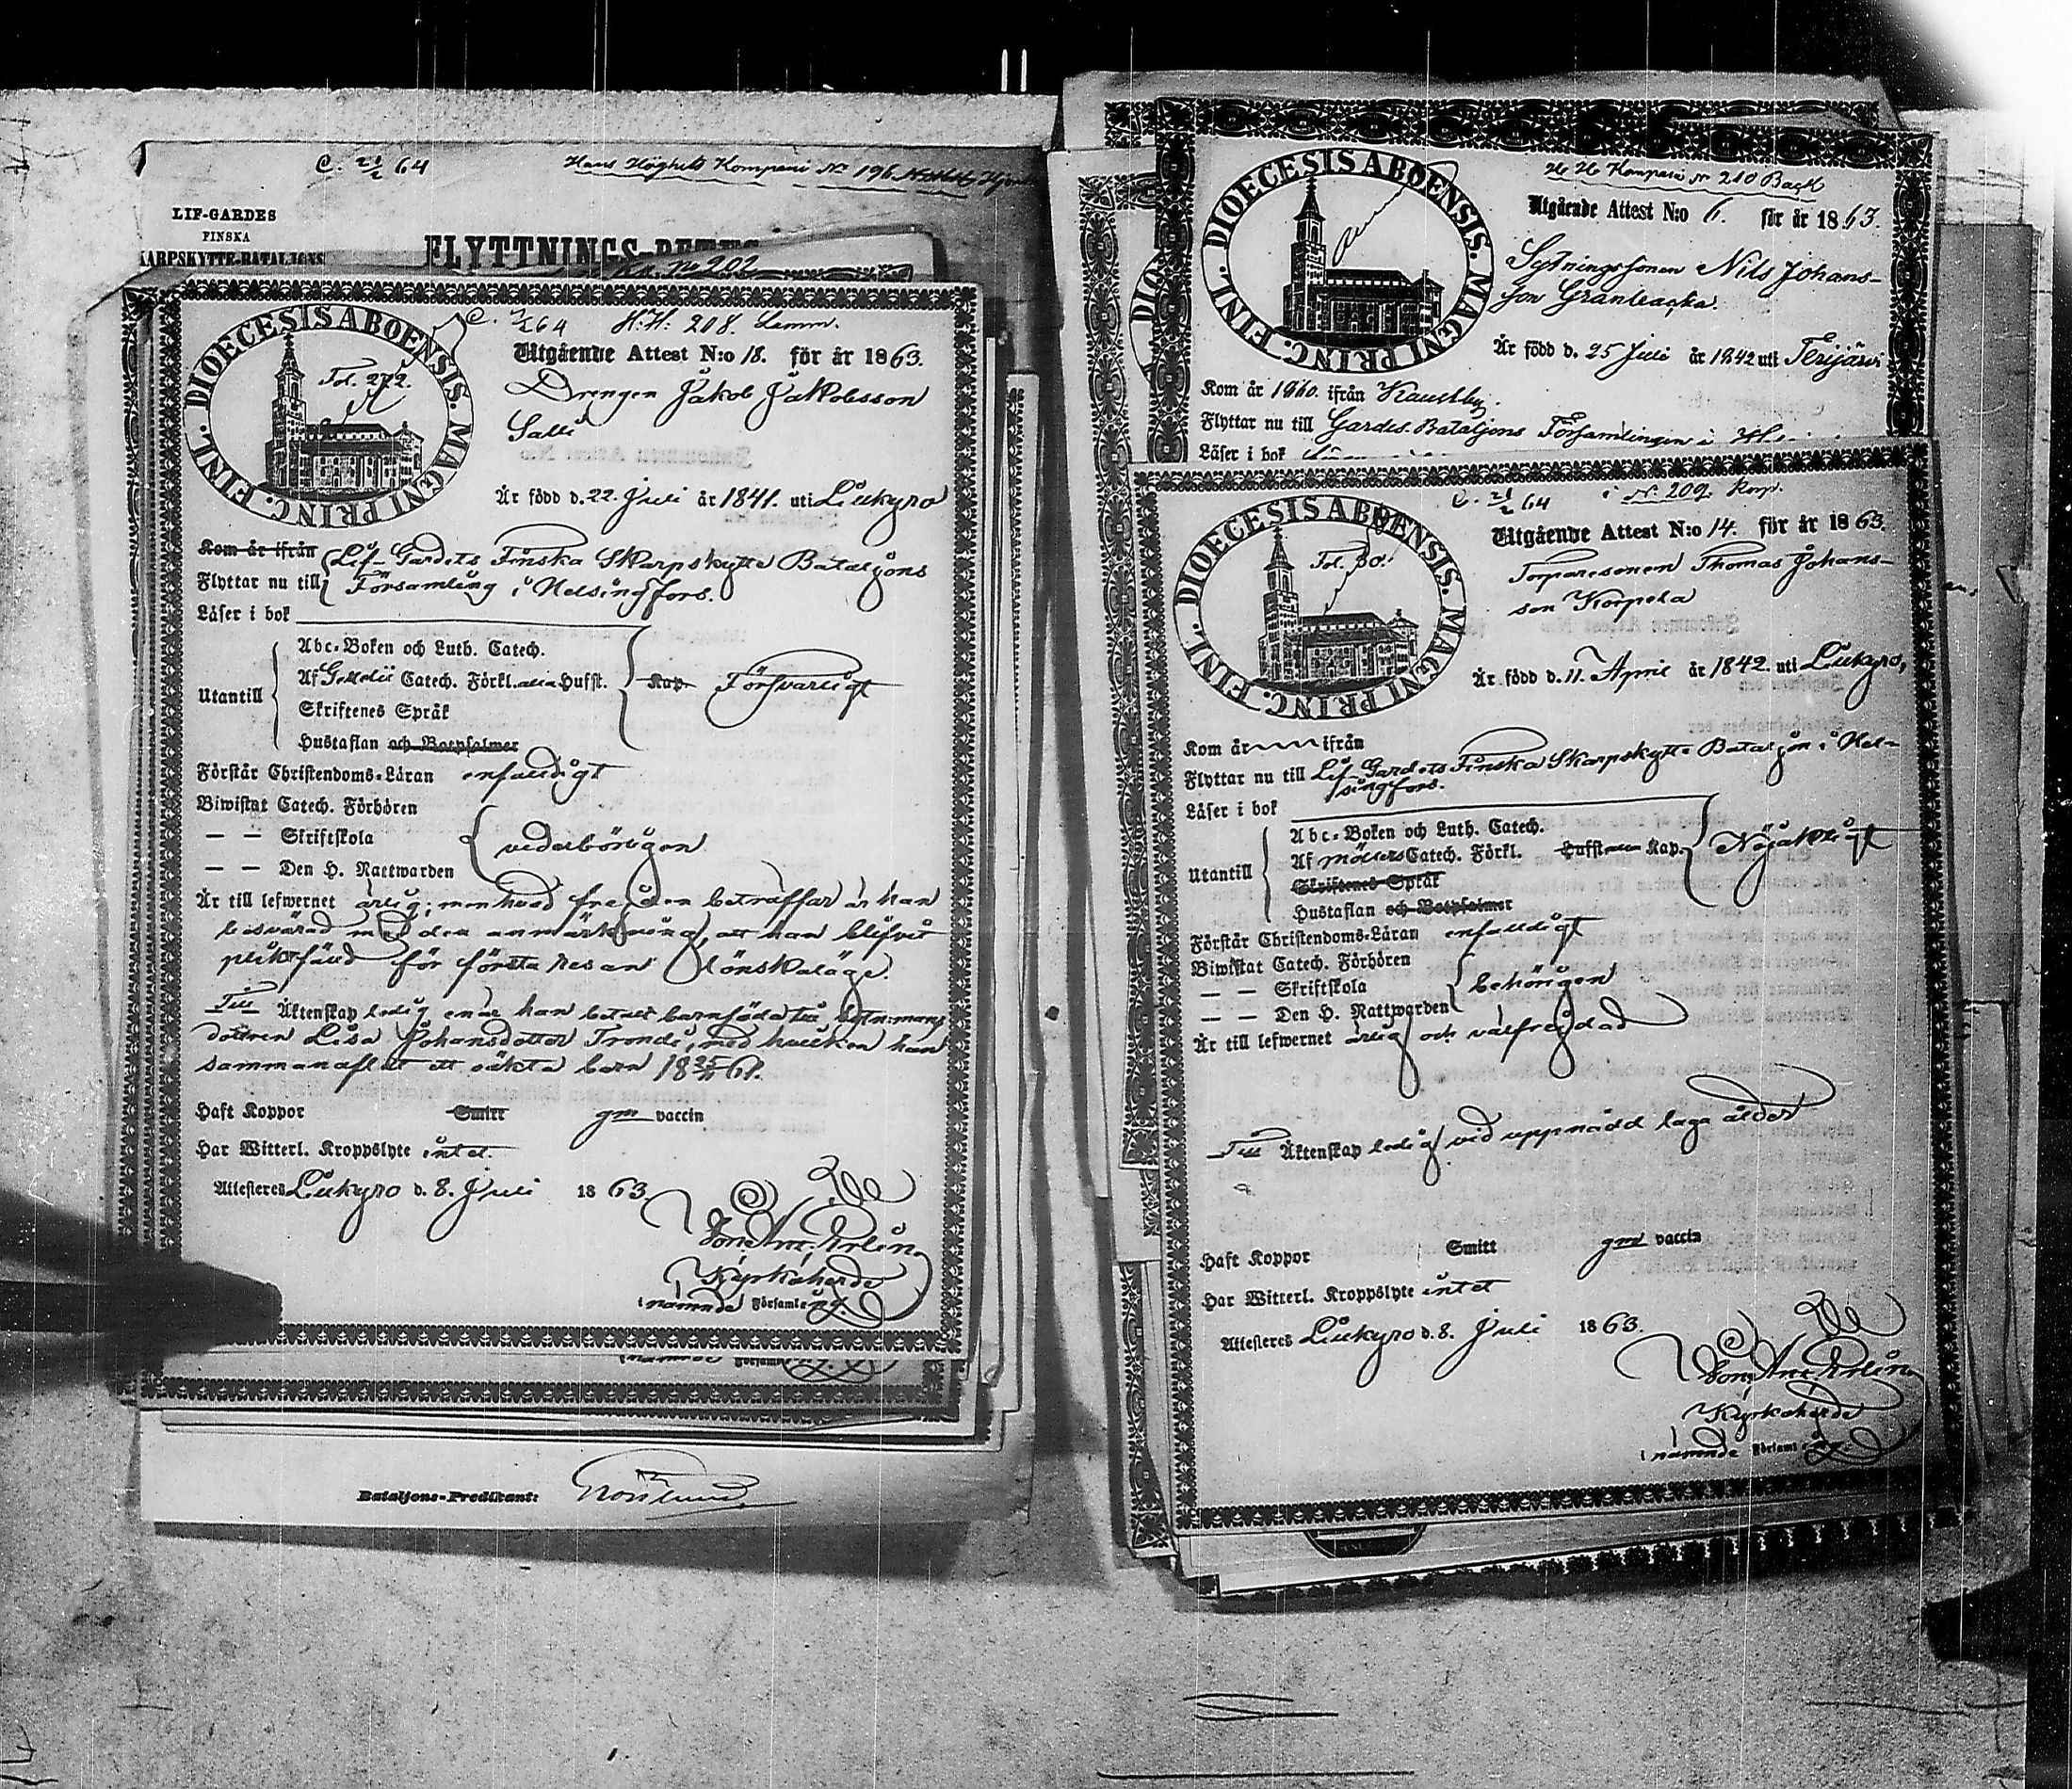 C. 21/2 64 Hans Höghets Kompani No 196
LIF-GARDES
FINSKA
KARPSKYTTE-BATALJONS
FLYTTNINGS-BETYG
No 202
C. 64 H.H: 208. Lamm.
DIOECESIS ABOENSIS. MAGNI PRINC. FINL.
Fol. 272.
Utgående Attest N:o 18. för år 1863.
Drengen Jakob Jakobsson
Salli
Är född d. 22 Juli år 1841. uti Lillkyro
Kom år ifrån Lif-Gardets Finska Skarpskytte Bataljons
Flyttar nu till Församling i Helsingfors.
Läser i bok
Abc-Boken och Luth. Catech.
Af Gezelii Catech. Förkl. Hufst. Kap. Försvarligt
Utantill
Skriftenes Språk
Hustaflan och Botpsalmer
Förstår Christendoms-Läran enfaldigt
Biwistat Catech. Förhören
— — Skriftskola vederbörligen
— — Den H. Nattwarden
Är till lefwernet ärlig; men hvad frejden beträffar är han
besvärad med den anmärkning, att han blifvit
pliktfäld för första resan lönskaläge.
Till Äktenskap ledig enär han betalt barnföda till
dottren Lisa Johansdotter Trondi, med hvilken han
sammanaflat ett oäkta barn 18 25/11 61.
Haft Koppor Smitt gm vaccin
Har Witterl. Kroppslyte intet.
Attesteres Lillkyro d. 8. Juli 1863.
Kyrkoherde
i nämnde Församling.
i nämnde Församling.
Bataljons-Predikant:
H H Kompani No 210 Back
DIOECESIS ABOENSIS. MAGNI PRINC. FINL.
Utgående Attest N:o 6. för år 1863.
Sytningssonen Nils Johans-
son Granbacka.
Är född d. 25 Juli år 1842 uti Terijärvi
Kom år 1860. ifrån Kaustby.
Flyttar nu till Gardes Bataljons Församlingen i
Läser i bok
C. 21/2 64 No 209 Korp.
DIOECESIS ABOENSIS. MAGNI PRINC. FINL.
Fol. 80.
Utgående Attest N:o 14. för år 1863.
Torparesonen Thomas Johans-
son Korpela
Är född d. 11 April år 1842. uti Lillkyro,
Kom år ifrån
Flyttar nu till Lif-Gardets Finska Skarpskytte Bataljon i Hel-
singfors.
Läser i bok
Abc-Boken och Luth. Catech.
Af Möllers Catech. Förkl. Hufst. Kap. Nöjaktligt
Utantill
Skriftenes Språk
Hustaflan och Botpsalmer
Förstår Christendoms-Läran enfaldigt
Biwistat Catech. Förhören
— — Skriftskola behörigen
— — Den H. Nattwarden
Är till lefwernet ärlig och välfrejdad
Till Äktenskap ledig vid uppnådd laga ålder
Haft Koppor Smitt gm vaccin
Har Witterl. Kroppslyte intet
Attesteres Lillkyro d. 8. Juli 1863.
Kyrkoherde
i nämnde Församling.